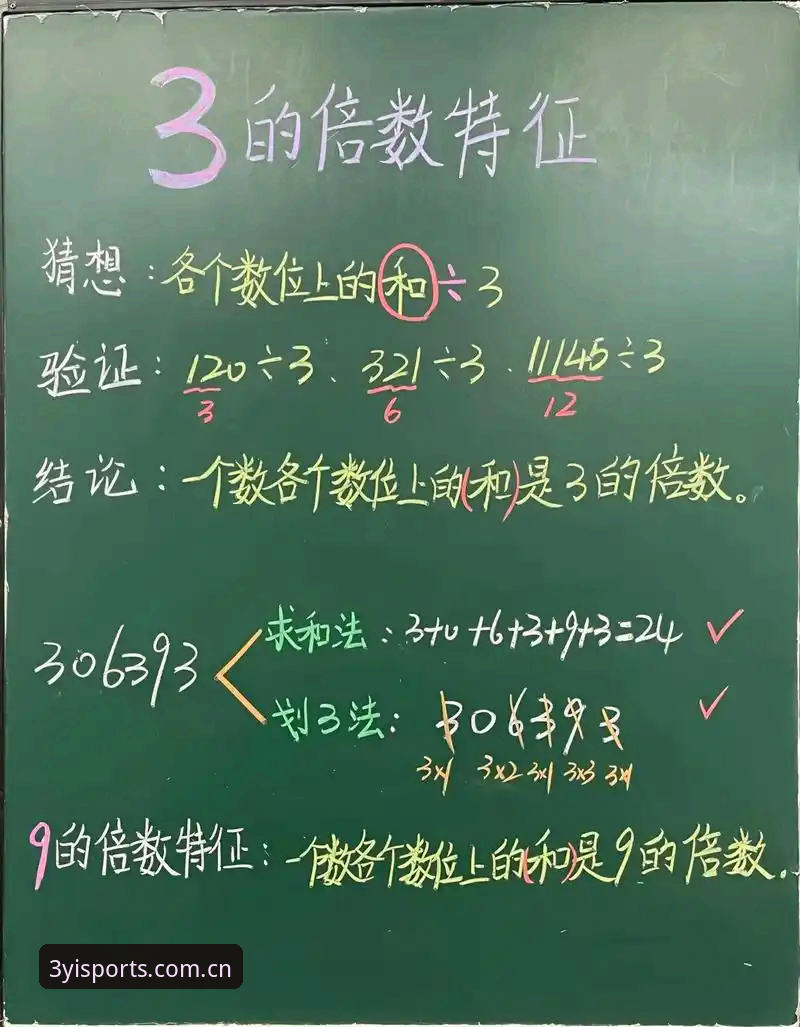 3的倍数特征
猜想：各个数位上的和÷3
验证：120÷3、321÷3、11145÷3
3 6 12
结论：一个数各个数位上的(和)是3的倍数。
306393
求和法：3+0+6+3+9+3=24 ✓
划3法：306393 ✓
3×1 3×2 3×1 3×3 3×1
9的倍数特征：一个数各个数位上的(和)是9的倍数.
3yisports.com.cn